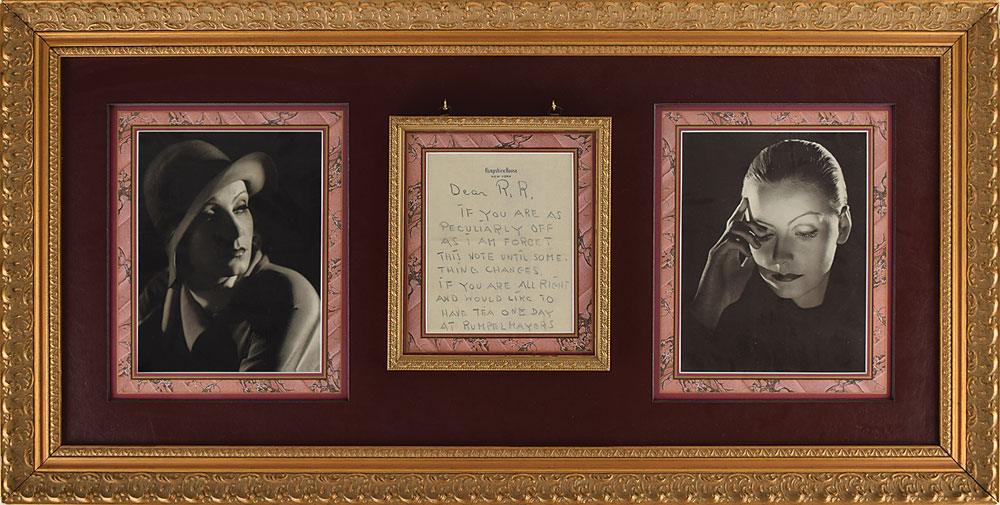 Hampshire House
NEW YORK
Dear R. R.
IF YOU ARE AS
PECULIARLY OFF
AS I AM FORGET
THIS NOTE UNTIL SOME-
THING CHANGES.
IF YOU ARE ALL RIGHT
AND WOULD LIKE TO
HAVE TEA ONE DAY
AT RUMPELMAYERS